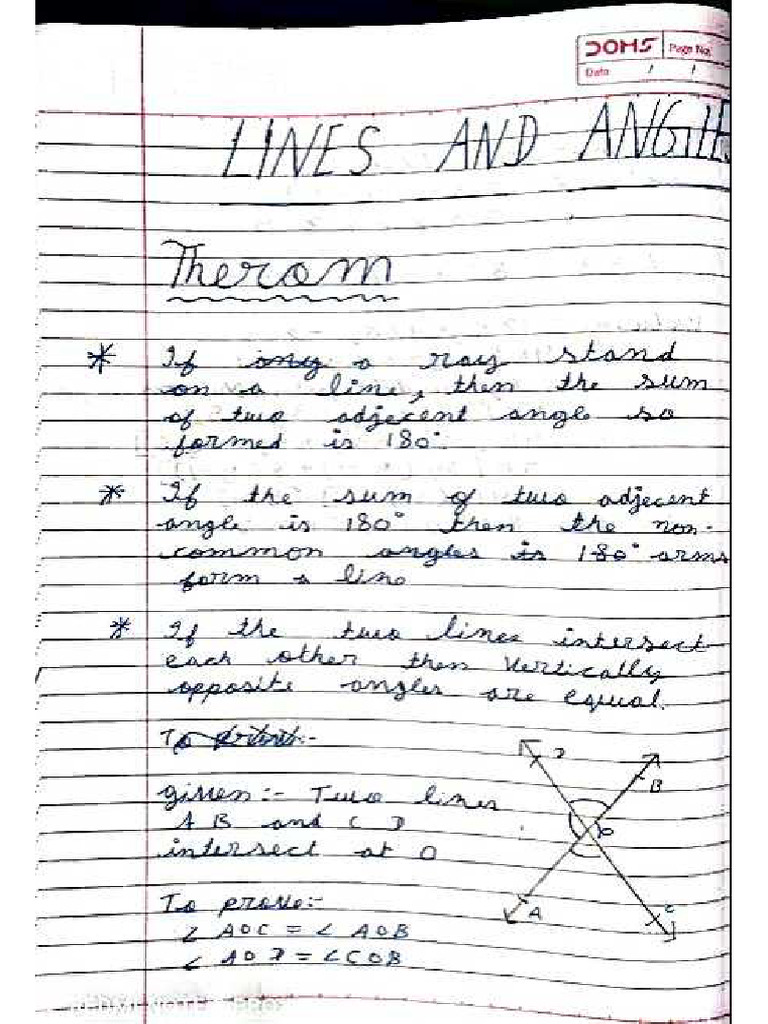 DOMS Page No.
Date / /
LINES AND ANGLE
Therom
* If any a ray stand
on a line, then the sum
of two adjecent angle so
formed is 180°
* If the sum of two adjecent
angle is 180° then the non-
common angles is 180° arms
form a line
* If the two lines intersect
each other then Vertically
opposite angles are equal.
To
given:- Two lines
AB and CD
intersect at O
D
B
O
A
C
To prove:-
∠AOC = ∠AOB
∠AOD = ∠COB
REDMI NOTE